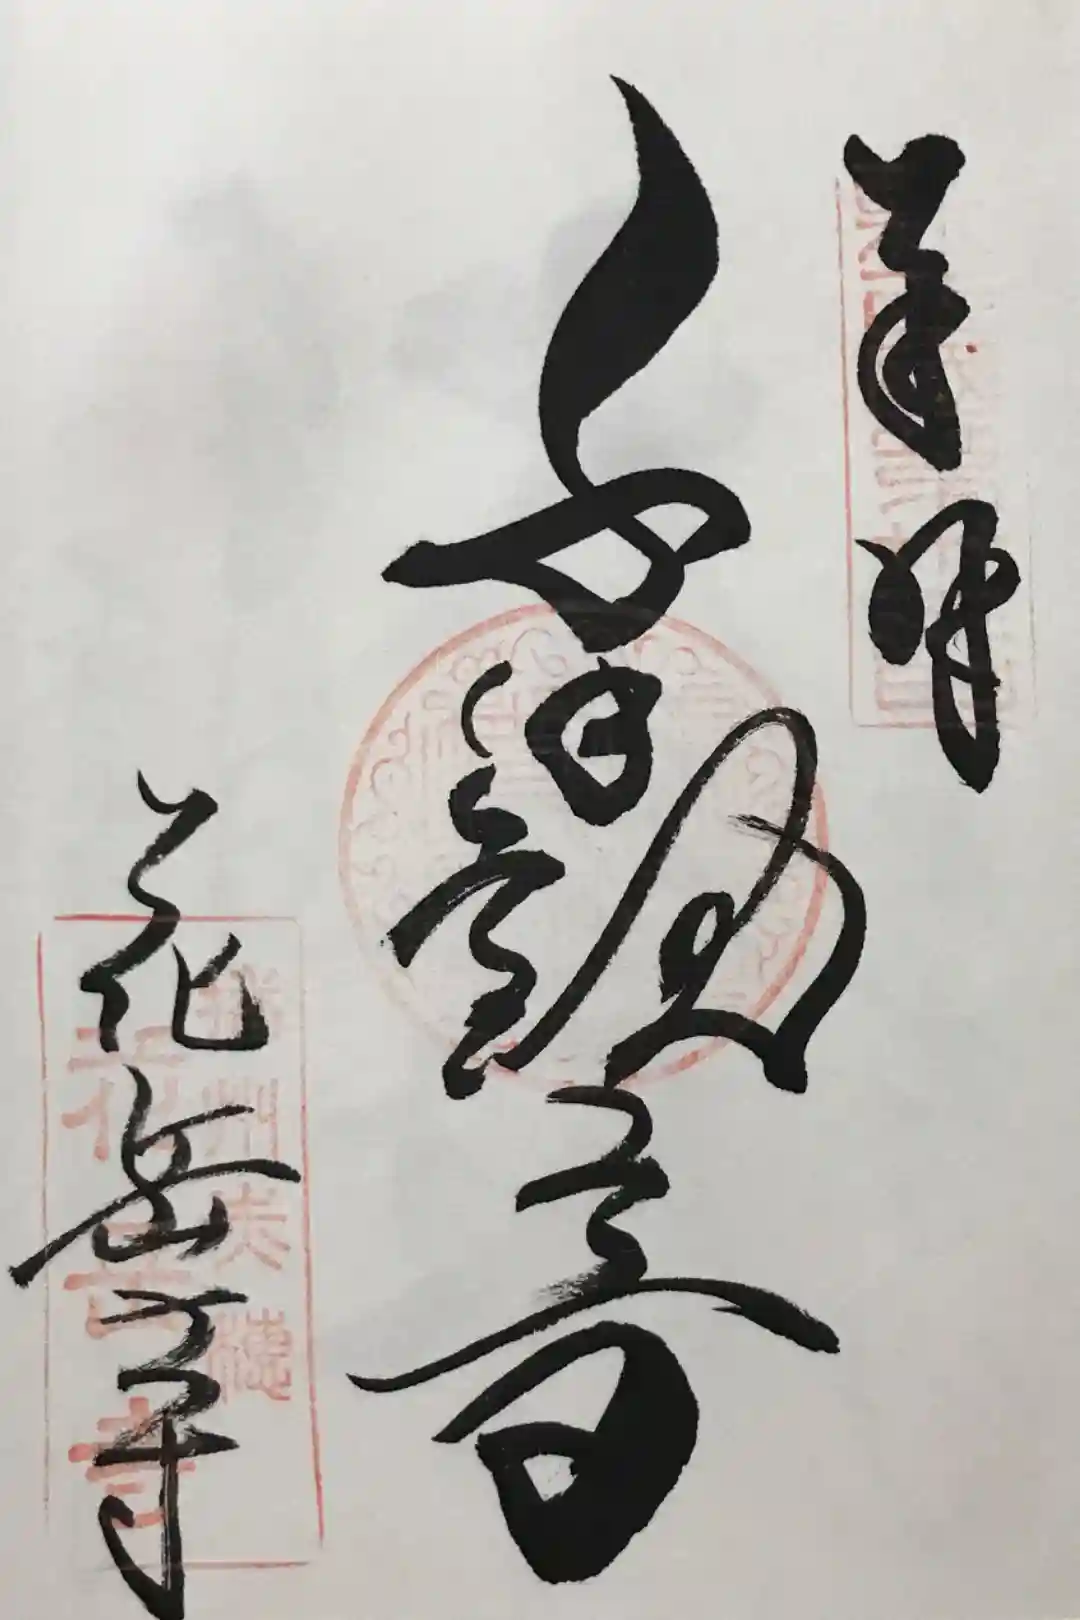 奉拝
千手觀音
花岳寺
播州赤穂
花岳寺